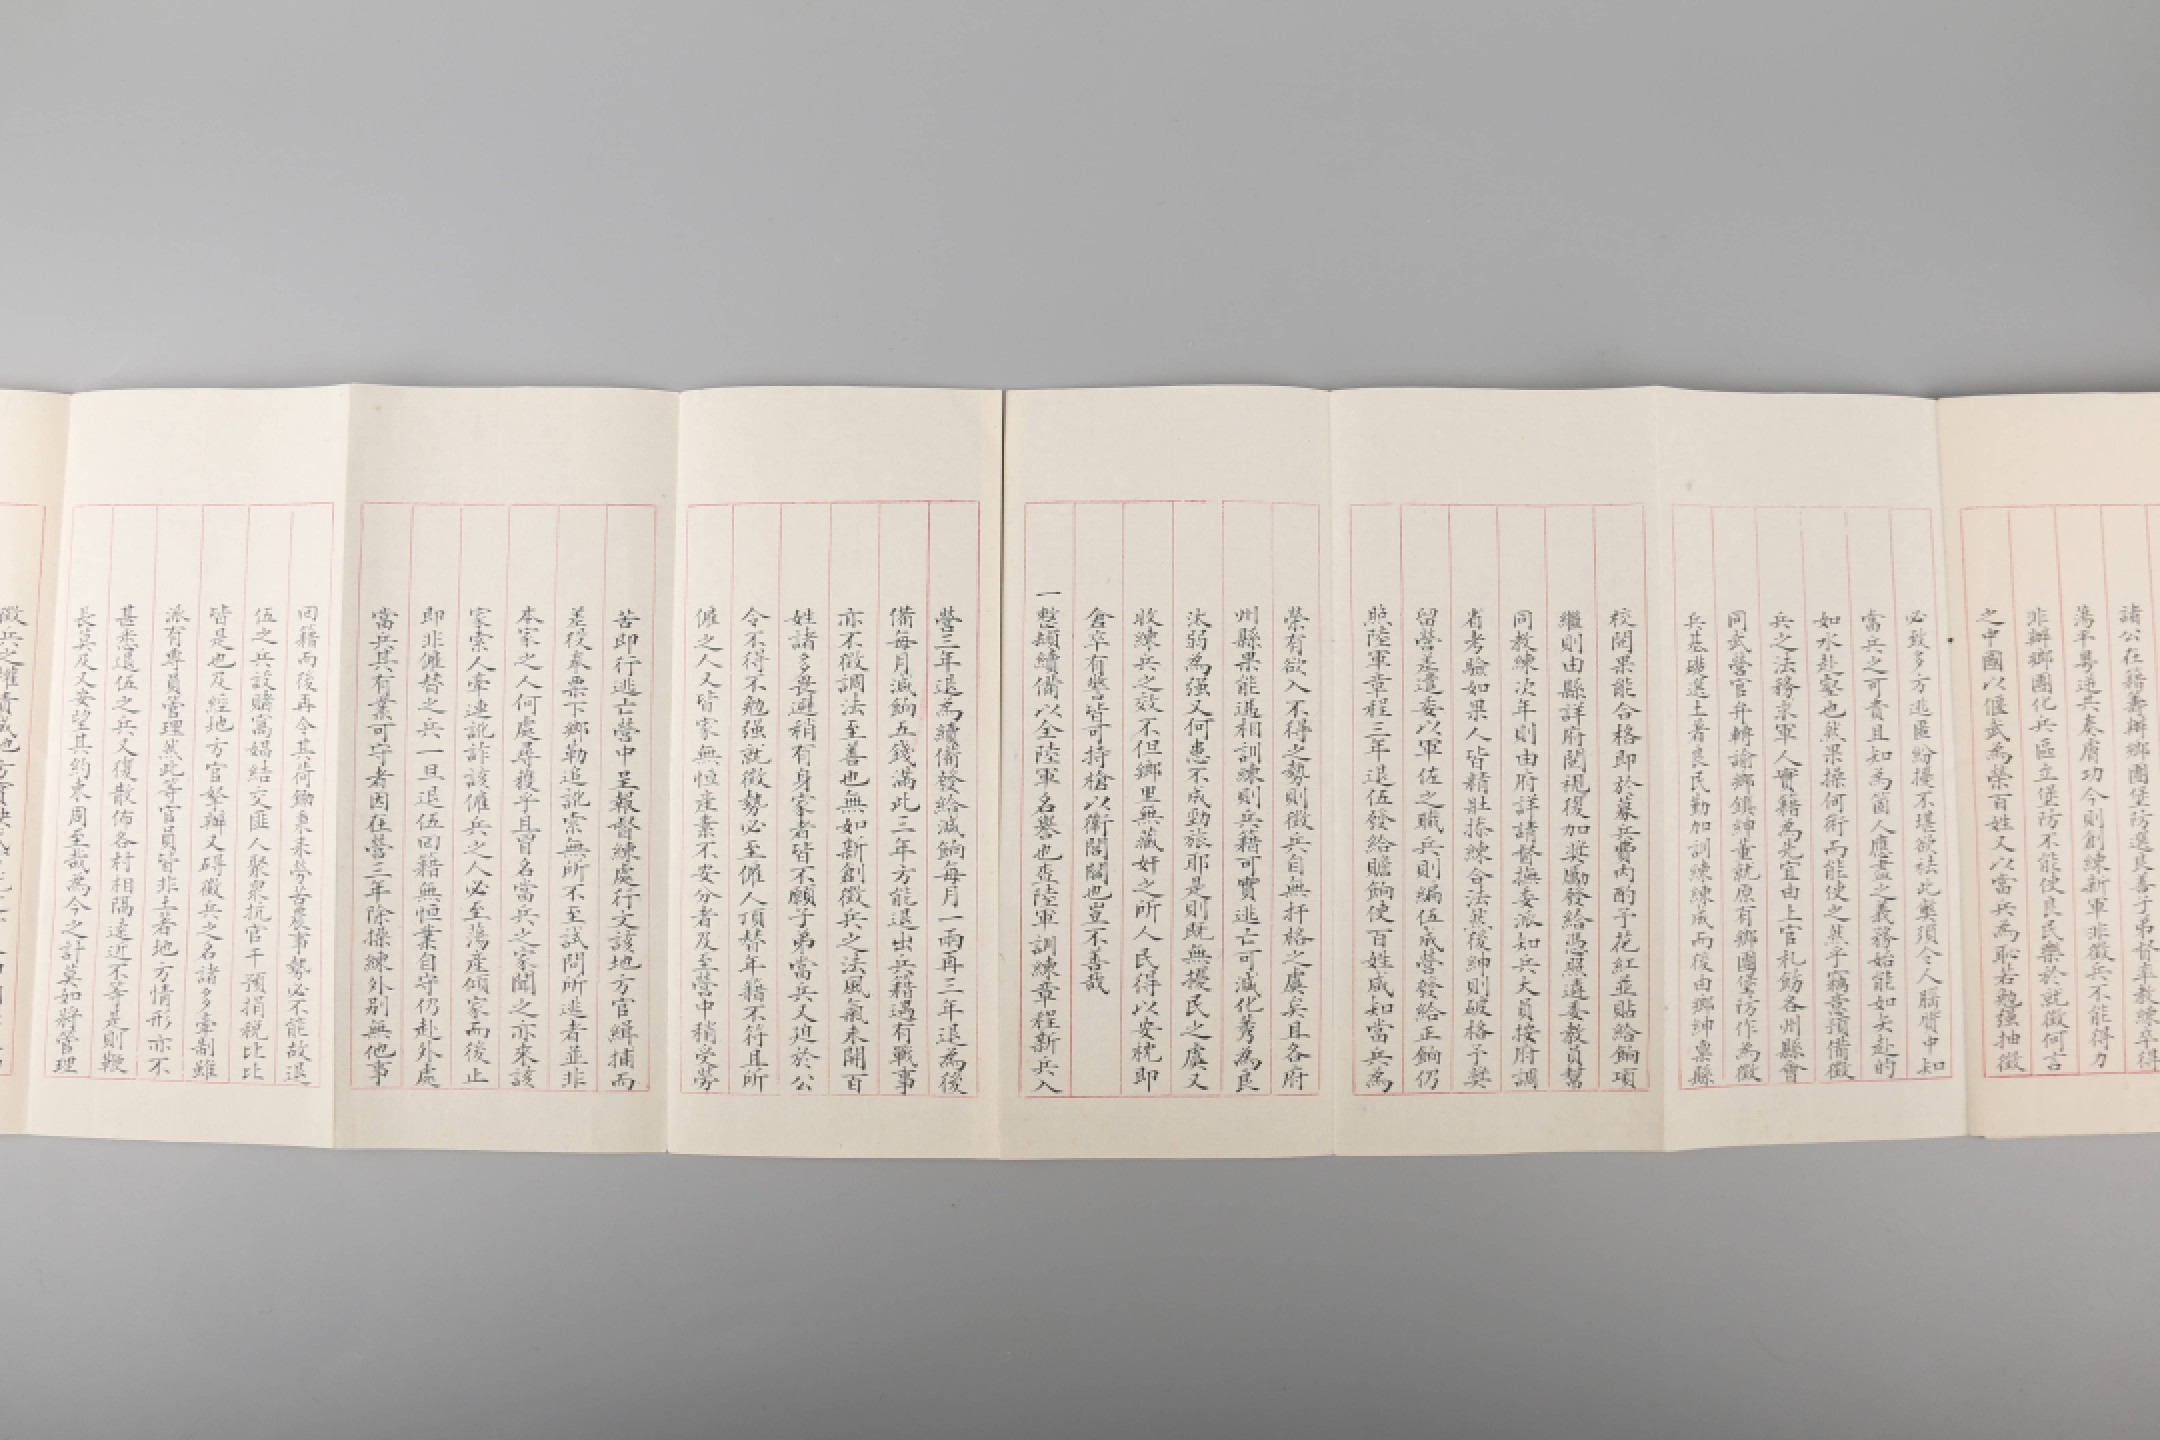 諸公在籍籌辦鄉團堡防選良善子弟督率教練卒得
蕩平粵逆共奏膚功今則創練新軍非徵兵不能得力
非辦鄉團化兵區立堡防不能使良民樂於就徵何言
之中國以偃武為榮百姓又以當兵為恥若勉强抽徵
必致多方逃匿紛擾不堪欲祛此弊須令人腦膂中知
當兵之可貴且知為箇人應盡之義務始能如矢赴的
如水赴壑也然果操何術而能使之然乎竊意預備徵
兵之法務求軍人實籍為先宜由上官札飭各州縣會
同武營官弁轉諭鄉鎮紳董就原有鄉團堡防作為徵
兵基礎選土著良民勤加訓練練成而後由鄉紳稟縣
校閱果能合格即於募兵費內酌予花紅並貼給餉項
繼則由縣詳府閱視復加奬勵發給憑照遴委教員幫
同教練次年則由府詳請督撫委派知兵大員按府調
省考驗如果人皆精壯操練合法然後紳則破格予奬
留營差遣委以軍佐之職兵則編伍成營發給正餉仍
照陸軍章程三年退伍發給贍餉使百姓咸知當兵為
榮有欲入不得之勢則徵兵自無扞格之虞矣且各府
州縣果能遞相訓練則兵籍可實逃亡可減化莠為良
汰弱為强又何患不成勁旅耶是則既無擾民之虞又
收練兵之效不但鄉里無藏奸之所人民得以安枕即
倉卒有警皆可持槍以衛閭閻也豈不善哉
一整頓續備以全陸軍名譽也查陸軍訓練章程新兵入
營三年退為續備發給減餉每月一兩再三年退為後
備每月減餉五錢滿此三年方能退出兵籍遇有戰事
亦不徵調法至善也無如新創徵兵之法風氣未開百
姓諸多畏避稍有身家者皆不願子弟當兵又迫於公
令不得不勉强就徵勢必至僱人頂替年籍不符且所
僱之人又皆家無恒產素不安分者及至營中稍受勞
苦即行逃亡營中呈報督練處行文該地方官緝捕而
差役奉票下鄉勒追訛索無所不至試問所逃者並非
本家之人何處尋獲乎且冒名當兵之家聞之亦來該
家索人牽連訛詐該僱兵之人必至蕩產傾家而後止
即非僱替之兵一旦退伍回籍無恒業自守仍赴外處
當兵其有業可守者因在營三年除操練外别無他事
回籍而後再令其荷鋤秉耒勞苦農事勢必不能故退
伍之兵設賭窩娼結交匪人聚衆抗官干預捐稅比比
皆是也及經地方官拏辦又碍徵兵之名諸多牽制雖
派有專員管理然此等官員皆非土著地方情形亦不
甚悉退伍之兵又復散佈各村相隔遠近不等是則鞭
長莫及又安望其約束周至哉為今之計莫如將管理